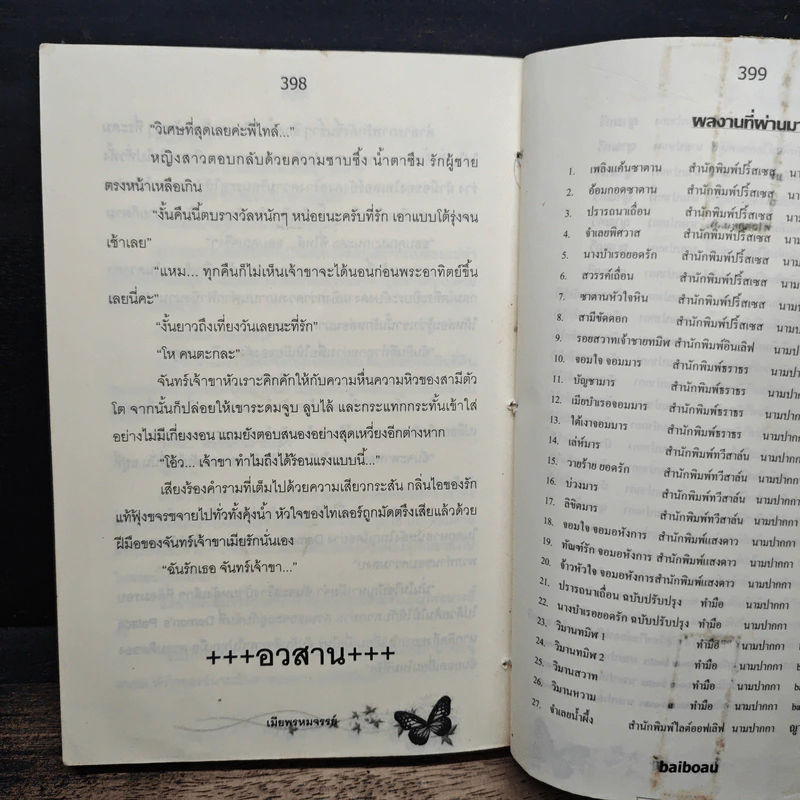 398
"วิเศษที่สุดเลยค่ะพี่ไทล์..."
หญิงสาวตอบกลับด้วยความซาบซึ้ง น้ำตาซึม รักผู้ชาย
ตรงหน้าเหลือเกิน
"งั้นคืนนี้ตบรางวัลหนักๆ หน่อยนะครับที่รัก เอาแบบโต้รุ่งจน
เช้าเลย"
"แหม... ทุกคืนก็ไม่เห็นเจ้าขาจะได้นอนก่อนพระอาทิตย์ขึ้น
เลยนี่คะ"
"งั้นยาวถึงเที่ยงวันเลยนะที่รัก"
"โห คนตะกละ"
จันทร์เจ้าขาหัวเราะคิกคักให้กับความหื่นความหิวของสามีตัว
โต จากนั้นก็ปล่อยให้เขาระดมจูบ ลูบไล้ และกระแทกกระทั้นเข้าใส่
อย่างไม่มีเกี่ยงงอน แถมยังตอบสนองอย่างสุดเหวี่ยงอีกต่างหาก
"โอ้ว... เจ้าขา ทำไมถึงได้ร้อนแรงแบบนี้..."
เสียงร้องคำรามที่เต็มไปด้วยความเสียวกระสัน กลิ่นไอของรัก
แท้ฟุ้งขจรขจายไปทั่วทั้งคุ้งน้ำ หัวใจของไทเลอร์ถูกมัดตรึงเสียแล้วด้วย
ฝีมือของจันทร์เจ้าขาเมียรักนั่นเอง
"ฉันรักเธอ จันทร์เจ้าขา..."
+++อวสาน+++
เมียพรหมจรรย์
399
ผลงานที่ผ่านมา
1. เพลิงแค้นซาตาน สำนักพิมพ์ปริ้สเซส นาม
2. อ้อมกอดซาตาน สำนักพิมพ์ปริ้สเซส นาม
3. ปรารถนาเถื่อน สำนักพิมพ์ปริ้สเซส
4. จำเลยพิศวาส สำนักพิมพ์ปริ้สเซส นาม
5. นางบำเรอยอดรัก สำนักพิมพ์ปริ้สเซส นาม
6. สวรรค์เถื่อน สำนักพิมพ์ปริ้สเซส นาม
7. ซาตานหัวใจหิน สำนักพิมพ์ปริ้สเซส นามป
8. สามีขัดดอก สำนักพิมพ์ปริ้สเซส นามป
9. รอยสวาทเจ้าชายทมิฬ สำนักพิมพ์อินเลิฟ นามป
10. จอมใจ จอมมาร สำนักพิมพ์ธราธร นามปา
11. บัญชามาร สำนักพิมพ์ธราธร นามปา
12. เมียบำเรอจอมมาร สำนักพิมพ์ธราธร นามปา
13. ใต้เงาจอมมาร สำนักพิมพ์ธราธร นามปา
14. เล่ห์มาร สำนักพิมพ์ทวีสาส์น นามปา
15. วายร้าย ยอดรัก สำนักพิมพ์ทวีสาส์น นามปาก
16. บ่วงมาร สำนักพิมพ์ทวีสาส์น นามปาก
17. ลิขิตมาร สำนักพิมพ์ทวีสาส์น นามปากก
18. จอมใจ จอมอหังการ สำนักพิมพ์แสงดาว นามปากก
19. ทัณฑ์รัก จอมอหังการ สำนักพิมพ์แสงดาว นามปากกา
20. จ้าวหัวใจ จอมอหังการสำนักพิมพ์แสงดาว นามปากกา
21. ปรารถนาเถื่อน ฉบับปรับปรุง ทำมือ นามปากกา
22. นางบำเรอยอดรัก ฉบับปรับปรุง ทำมือ นามปากกา
23. วิมานทมิฬ 1 ทำมือ นามปากกา
24. วิมานทมิฬ 2 ทำมือ นามปากกา
25. วิมานสวาท ทำมือ นามปากกา ba
26. วิมานหวาม ทำมือ นามปากกา ba
27. จำเลยน้ำผึ้ง สำนักพิมพ์ไลต์ออฟเลิฟ นามปากกา
baiboau